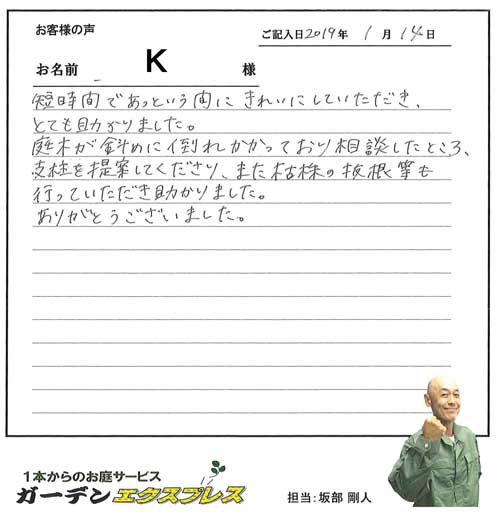 お客様の声
ご記入日2019年 1月 14日
お名前 K 様
短時間であっという間にきれいにしていただき、
とても助かりました。
庭木が斜めに倒れかかっており相談したところ、
支柱を提案してくださり、また枯株の抜根等も
行っていただき助かりました。
ありがとうございました。
1本からのお庭サービス
ガーデンエクスプレス
担当:坂部 剛人